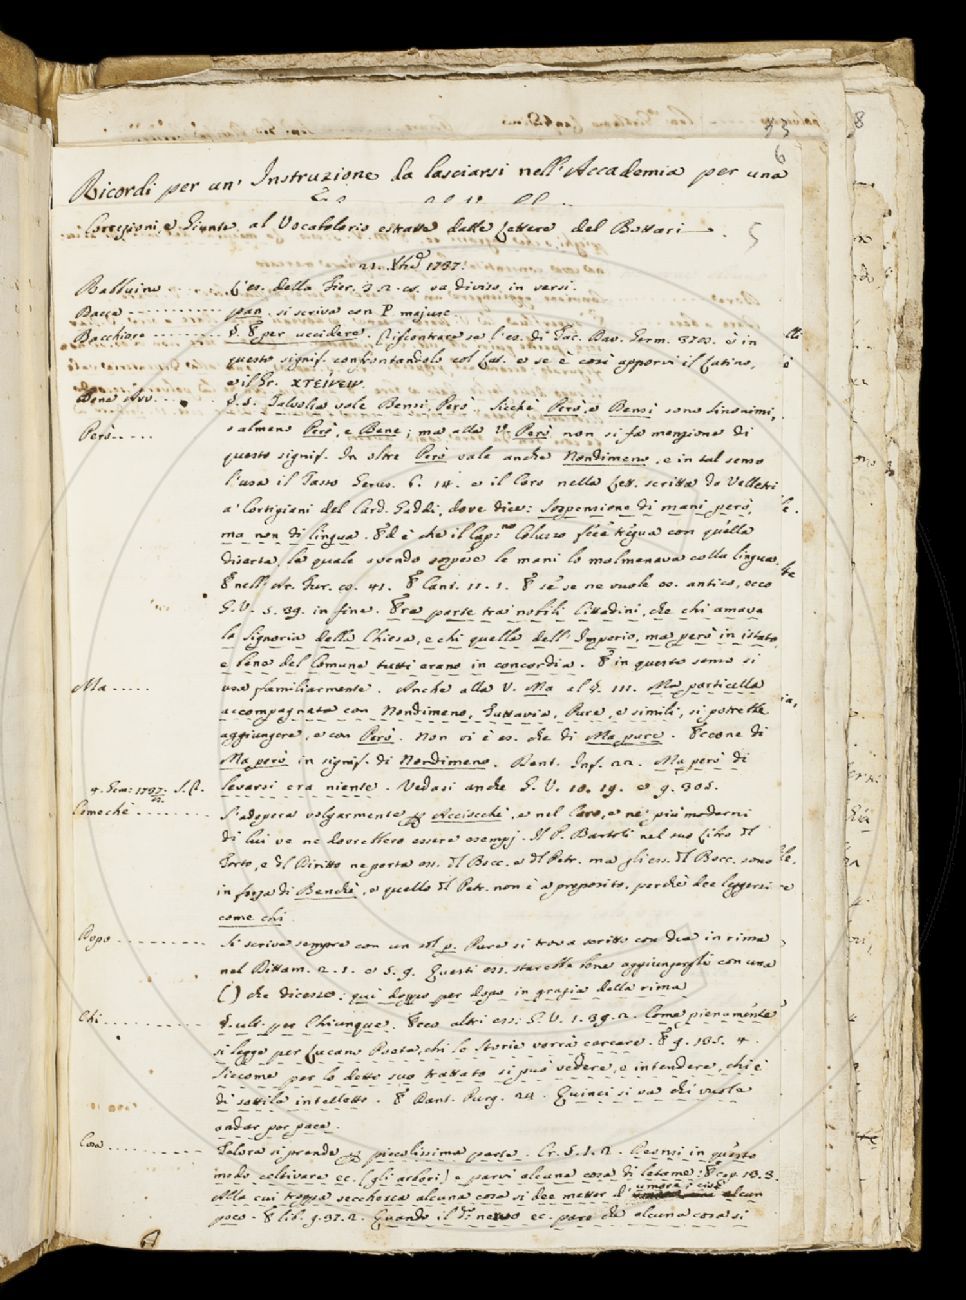 6
Ricordi per un' Instruzione da lasciarsi nell'Accademia per una
Correzioni, e Giunte al Vocabolario estratte dalle Lettere del Bottari 5
21. Xbre 1737.
Babbuino L'es. della Fier. 3. 2. va diviso in versi.
Bacca pan. si scriva con P. majusc.
Bacchiare §. E per uccidere. Riscontrare se l'es. di è in
questo signif. confrontandolo col Lat. e se è così apporvi il Latino,
e il Gr. κτείνειν.
Bene Avv. §. 5. Talvolta vale Bensì, Però. Sicchè Però, e Bensì sono sinonimi,
Però almeno Però, e Bene; ma alla V. Però non si fa menzione di
questo signif. In oltre Però vale anche Nondimeno, e in tal senso
l'usa il Tasso Gerus. 6. 14. e il Caro nella Lett. scritta da Velletri
a' Cortigiani del Card. Gaddi, dove dice: Sospensione di mani però,
ma non di lingua. Ed è che il Cap.no Coluzzo fece tregua con quella
diserta, la quale avendo sospese le mani lo malmenava colla lingua.
E nell' Ar. Fur. 41. E Cant. 11. 1. E se se ne vuole es. antico, ecco
G. V. 5. 39. in fine. Era parte tra' nobili Cittadini, che chi amava
la Signoria della Chiesa, e chi quella dell' Imperio, ma però in istato,
e bene del Comune tutti erano in concordia. E in questo senso si
Ma usa familiarmente. Anche alla V. Ma al §. III. Ma particella
accompagnata con Nondimeno, Tuttavia, Pure, e simili, si potrebbe
aggiungere, e con Però. Non vi è es. che di Ma pure. Eccone di
Ma però in signif. di Nondimeno. Dant. Inf. 22. Ma però di
4. Gen: 1737. levarsi era niente. Vedasi anche G. V. 10. 19. e 9. 305.
Comechè S'adopera volgarmente per Acciocchè, e nel Caro, e ne' più moderni
di lui ve ne dovrebbero essere esempj. Il P. Bartoli nel suo Libro del
Torto, e del Diritto ne porta ess. del Bocc. e del Petr. ma gli ess. del Bocc. sono
in forza di Benchè, e quello del Petr. non è a proposito, perchè dee leggersi
come chi.
Dopo Si scrive sempre con un sol p. Pure si trova scritto con due in rima
nel Dittam. 2. 1. e 5. 9. Questi ess. starebbe bene aggiungergli con una
( ) che dicesse: qui doppo per dopo in grazia della rima
Chi §. ult. per Chiunque. Ecco altri ess: G. V. 1. 39. 2. Come pienamente
si legge per Lucano Poeta, chi le Storie vorrà cercare. E 9. 135. 4.
Siccome per lo detto suo trattato si può vedere, e intendere, chi è
di sottile intelletto. E Dant. Purg. 24. Quinci si va chi vuole
andar per pace.
Cosa Talora si prende per piccolissima parte. Cr. 5. 1. 2. Deonsi in questo
modo coltivare ec. (gli arbori) e parvi alcuna cosa di letame: E cap. 18. 3.
Alla cui troppa secchezza alcuna cosa si dee metter d' umore, cioè alcun
poco. E lib. 9. 97. 2. Quando il ec. pare che alcuna cosa si